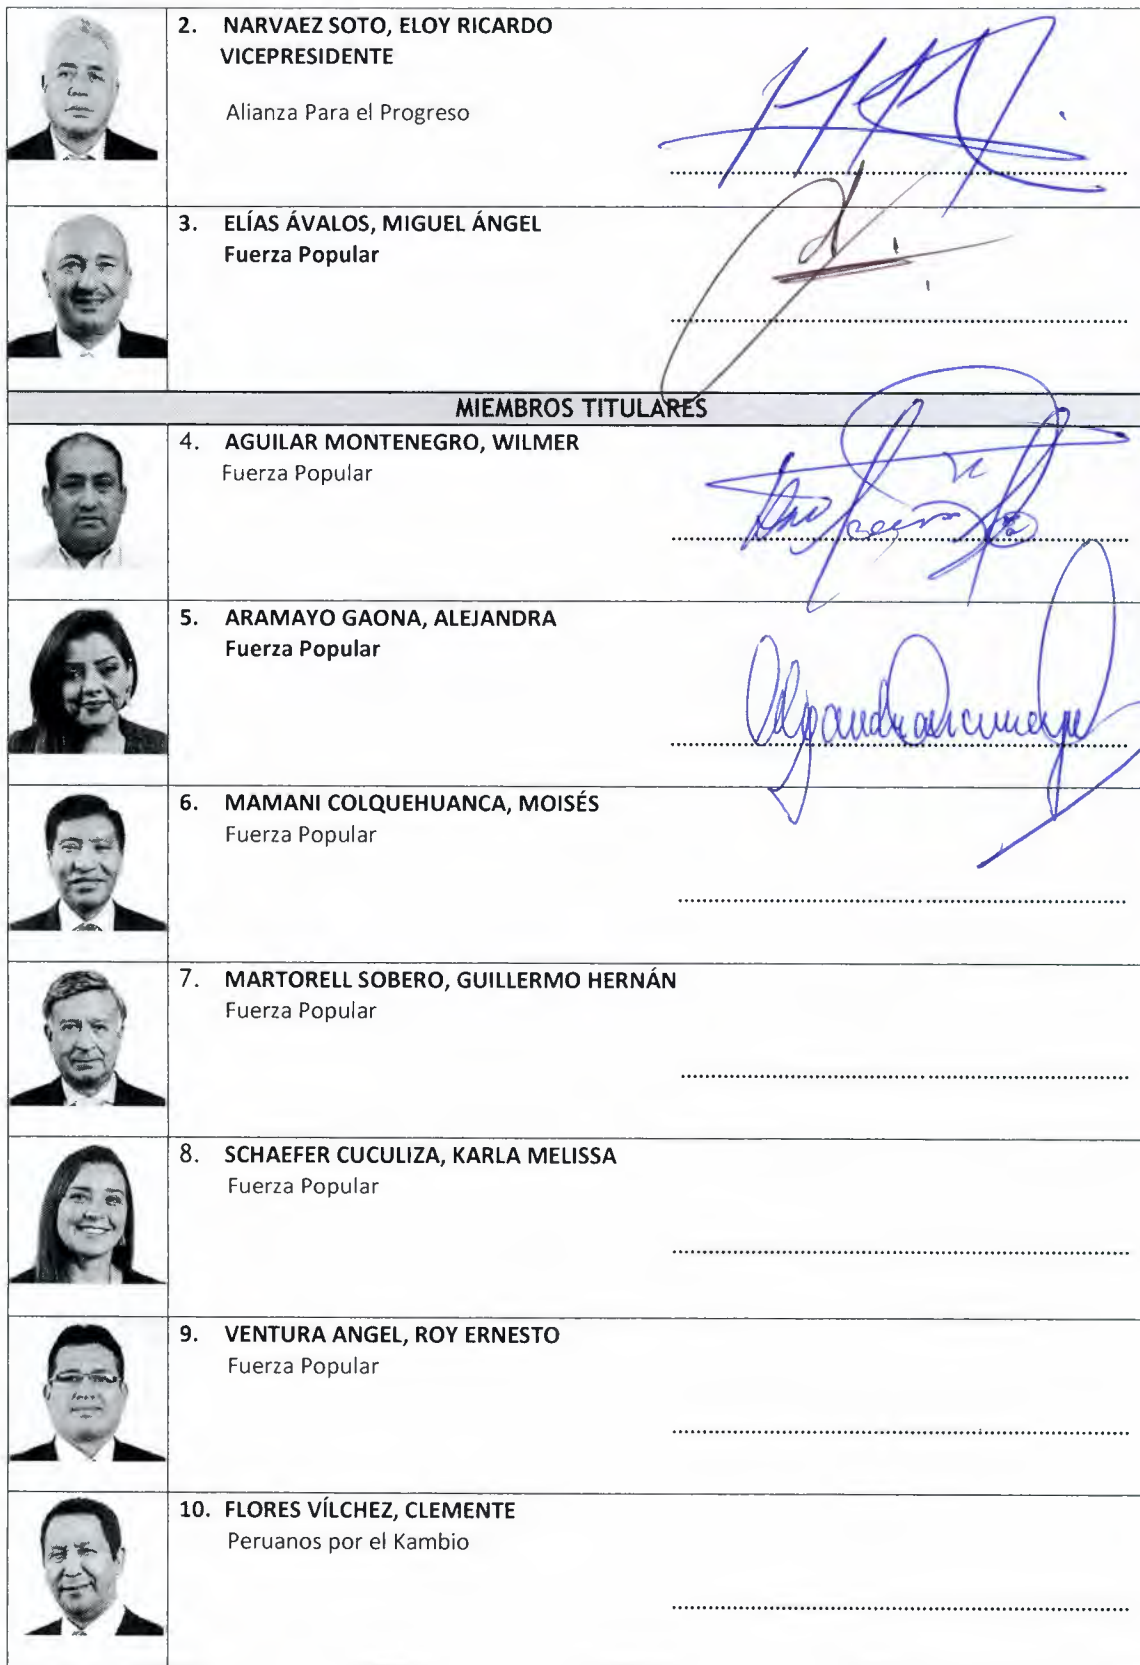 2. NARVAEZ SOTO, ELOY RICARDO
VICEPRESIDENTE
Alianza Para el Progreso
3. ELÍAS ÁVALOS, MIGUEL ÁNGEL
Fuerza Popular
MIEMBROS TITULARES
4. AGUILAR MONTENEGRO, WILMER
Fuerza Popular
5. ARAMAYO GAONA, ALEJANDRA
Fuerza Popular
6. MAMANI COLQUEHUANCA, MOISÉS
Fuerza Popular
7. MARTORELL SOBERO, GUILLERMO HERNÁN
Fuerza Popular
8. SCHAEFER CUCULIZA, KARLA MELISSA
Fuerza Popular
9. VENTURA ANGEL, ROY ERNESTO
Fuerza Popular
10. FLORES VÍLCHEZ, CLEMENTE
Peruanos por el Kambio